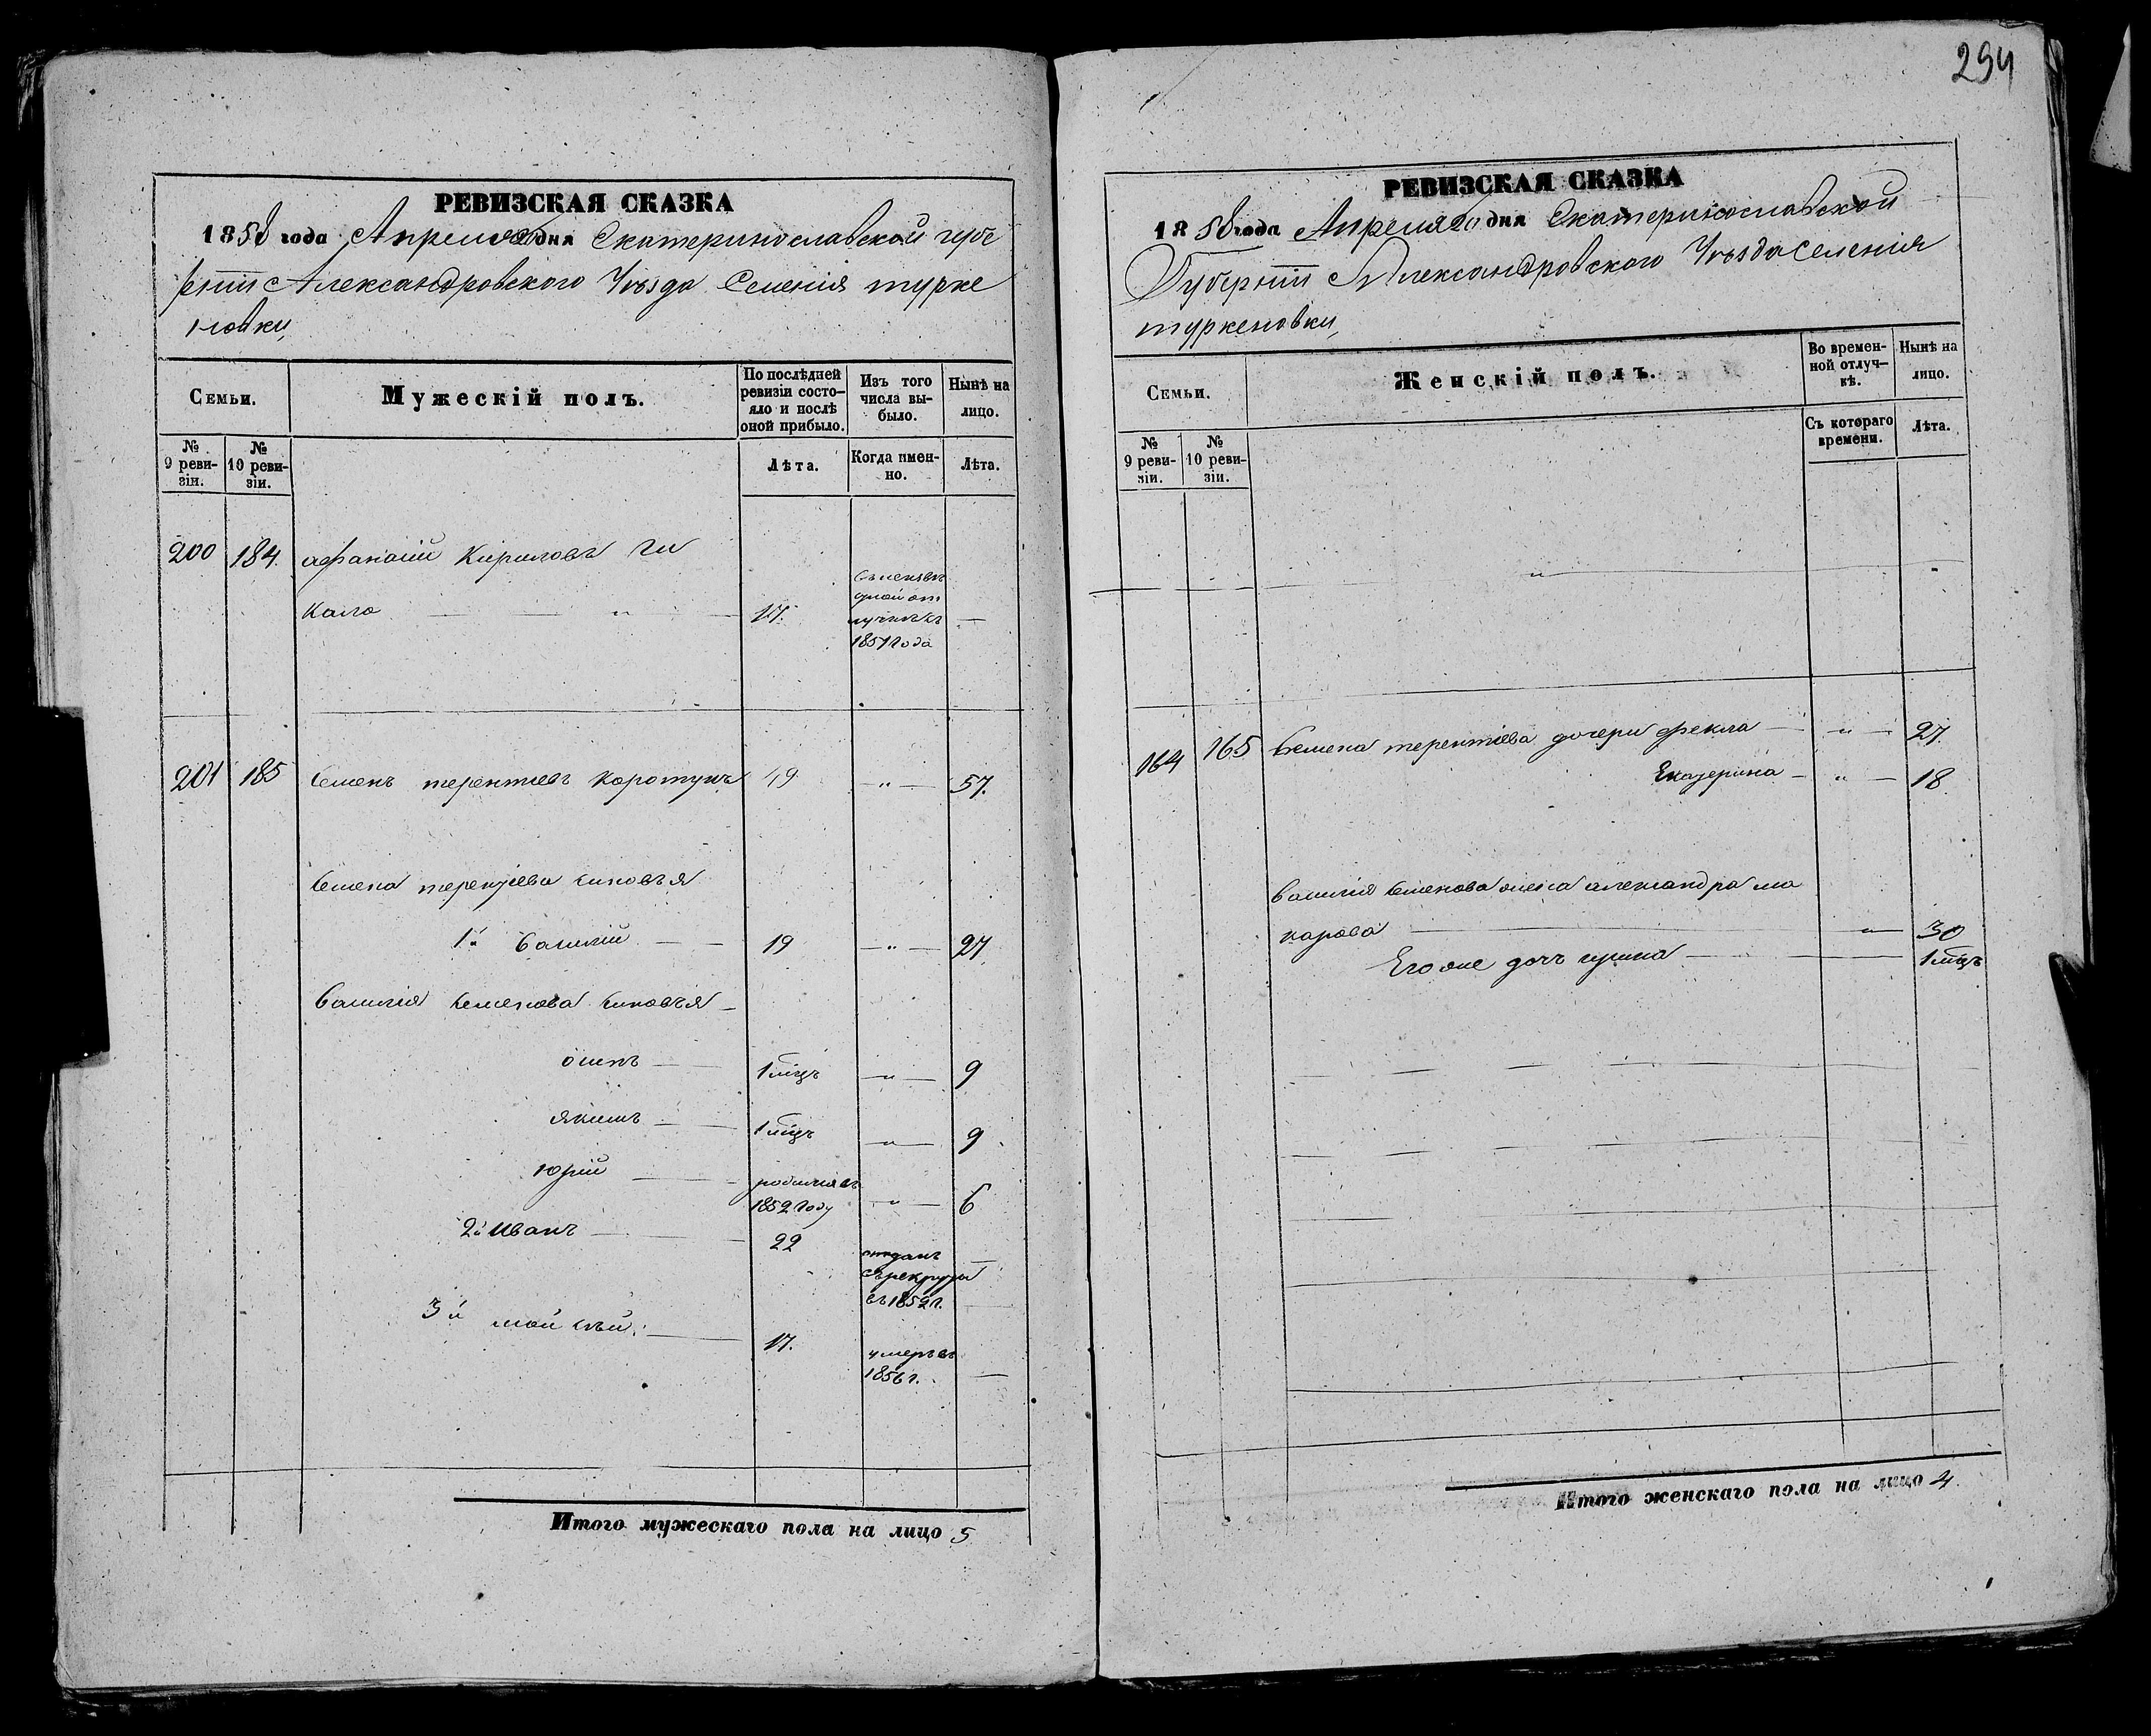 294
РЕВИЗСКАЯ СКАЗКА
1858 года Апреля дня Екатеринославской губе
рніи Александровского Уѣзда Селенія турке
новки,
Семьи.
Мужескій полъ.
По послѣдней
ревизіи состо-
яло и послѣ
оной прибыло.
Изъ того
числа вы-
было.
Нынѣ на
лицо.
№
9 реви-
зіи.
№
10 реви-
зіи.
Лѣта.
Когда имен-
но.
Лѣта.
200 184. афанасій Кириловъ Чи
кало " 17. —
отлучкѣ съ
1851 Года
201 185 Семенъ терентіевъ Коротунъ 49 " 57.
Семена терентіева сыновъя
1й Василій 19 " 27
Василія Семенова сыновъя
осипъ 1 мцъ " 9
якимъ 1 мцъ " 9
юрій родился въ
1852 Году " 6
2й Иванъ 22 отданъ
въ рекруты
въ 1852 г.
3й моисѣй 17. умеръ въ
1856 г.
Итого мужескаго пола на лицо 5
РЕВИЗСКАЯ СКАЗКА
1858 года Апреля 20 дня Екатеринославской
Губерніи Александровского Уѣзда Селенія
туркеновки,
Семьи.
Женскій полъ.
Во времен-
ной отлуч-
кѣ.
Нынѣ на
лицо.
№
9 реви-
зіи.
№
10 реви-
зіи.
Съ котораго
времени.
Лѣта.
164 165 Семена терентіева дочери фекла " 27.
Екатерина " 18.
Василія Семенова жена александра ма
карова " 30
Его же дочъ ирина 1 мцъ
Итого женскаго пола на лицо 4